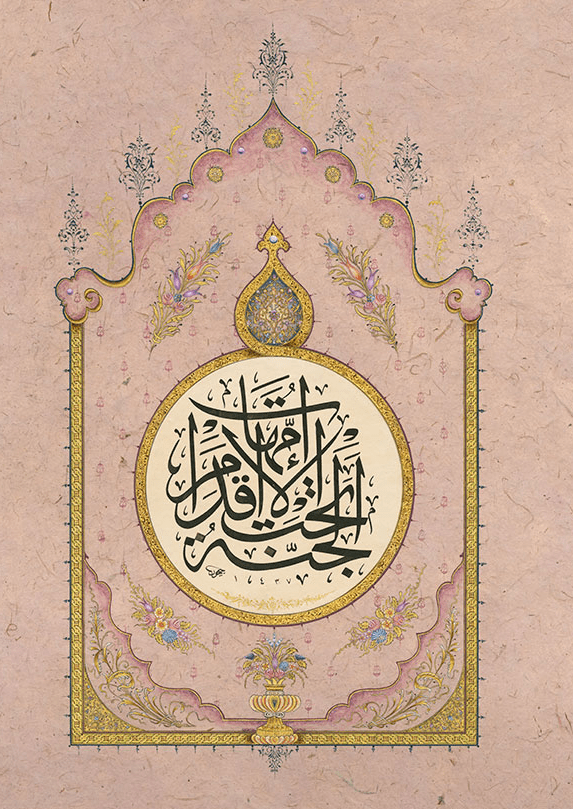 الجنّة تحت أقدام الأمّهات
١٤٣٧